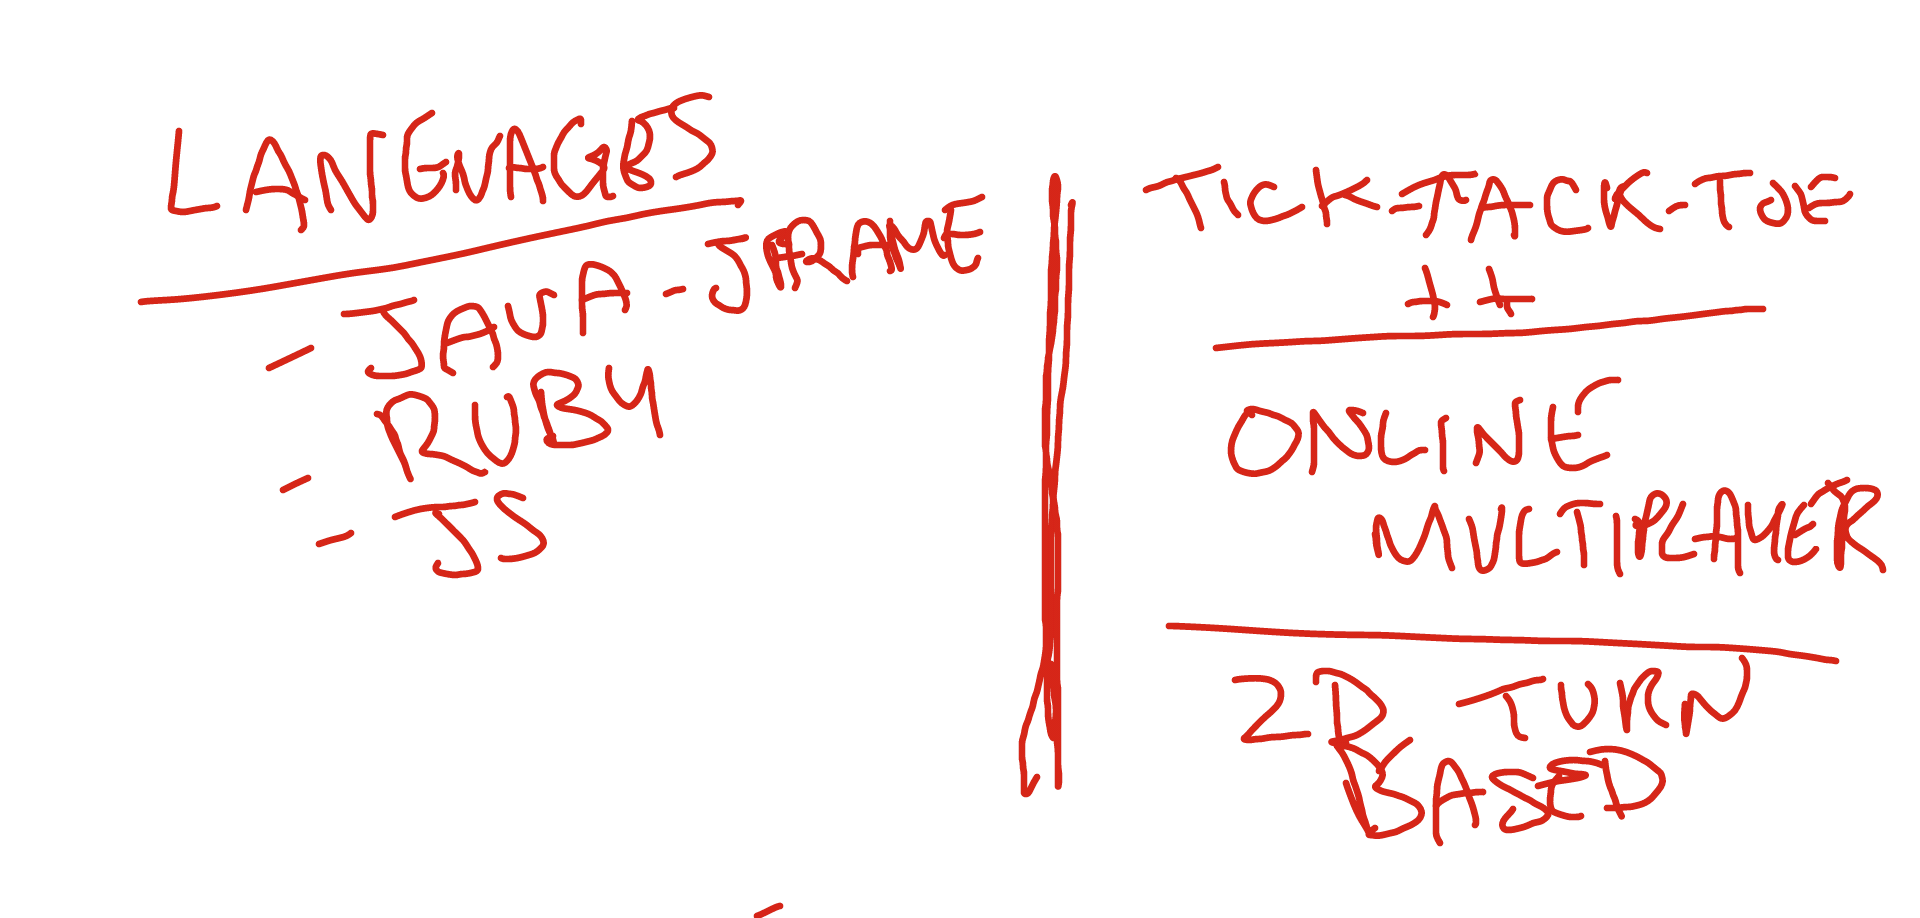 LANGUAGES
- JAVA - JFRAME
- RUBY
- JS
TICK-TACK-TOE
++
ONLINE
MULTIPLAYER
2D TURN
BASED